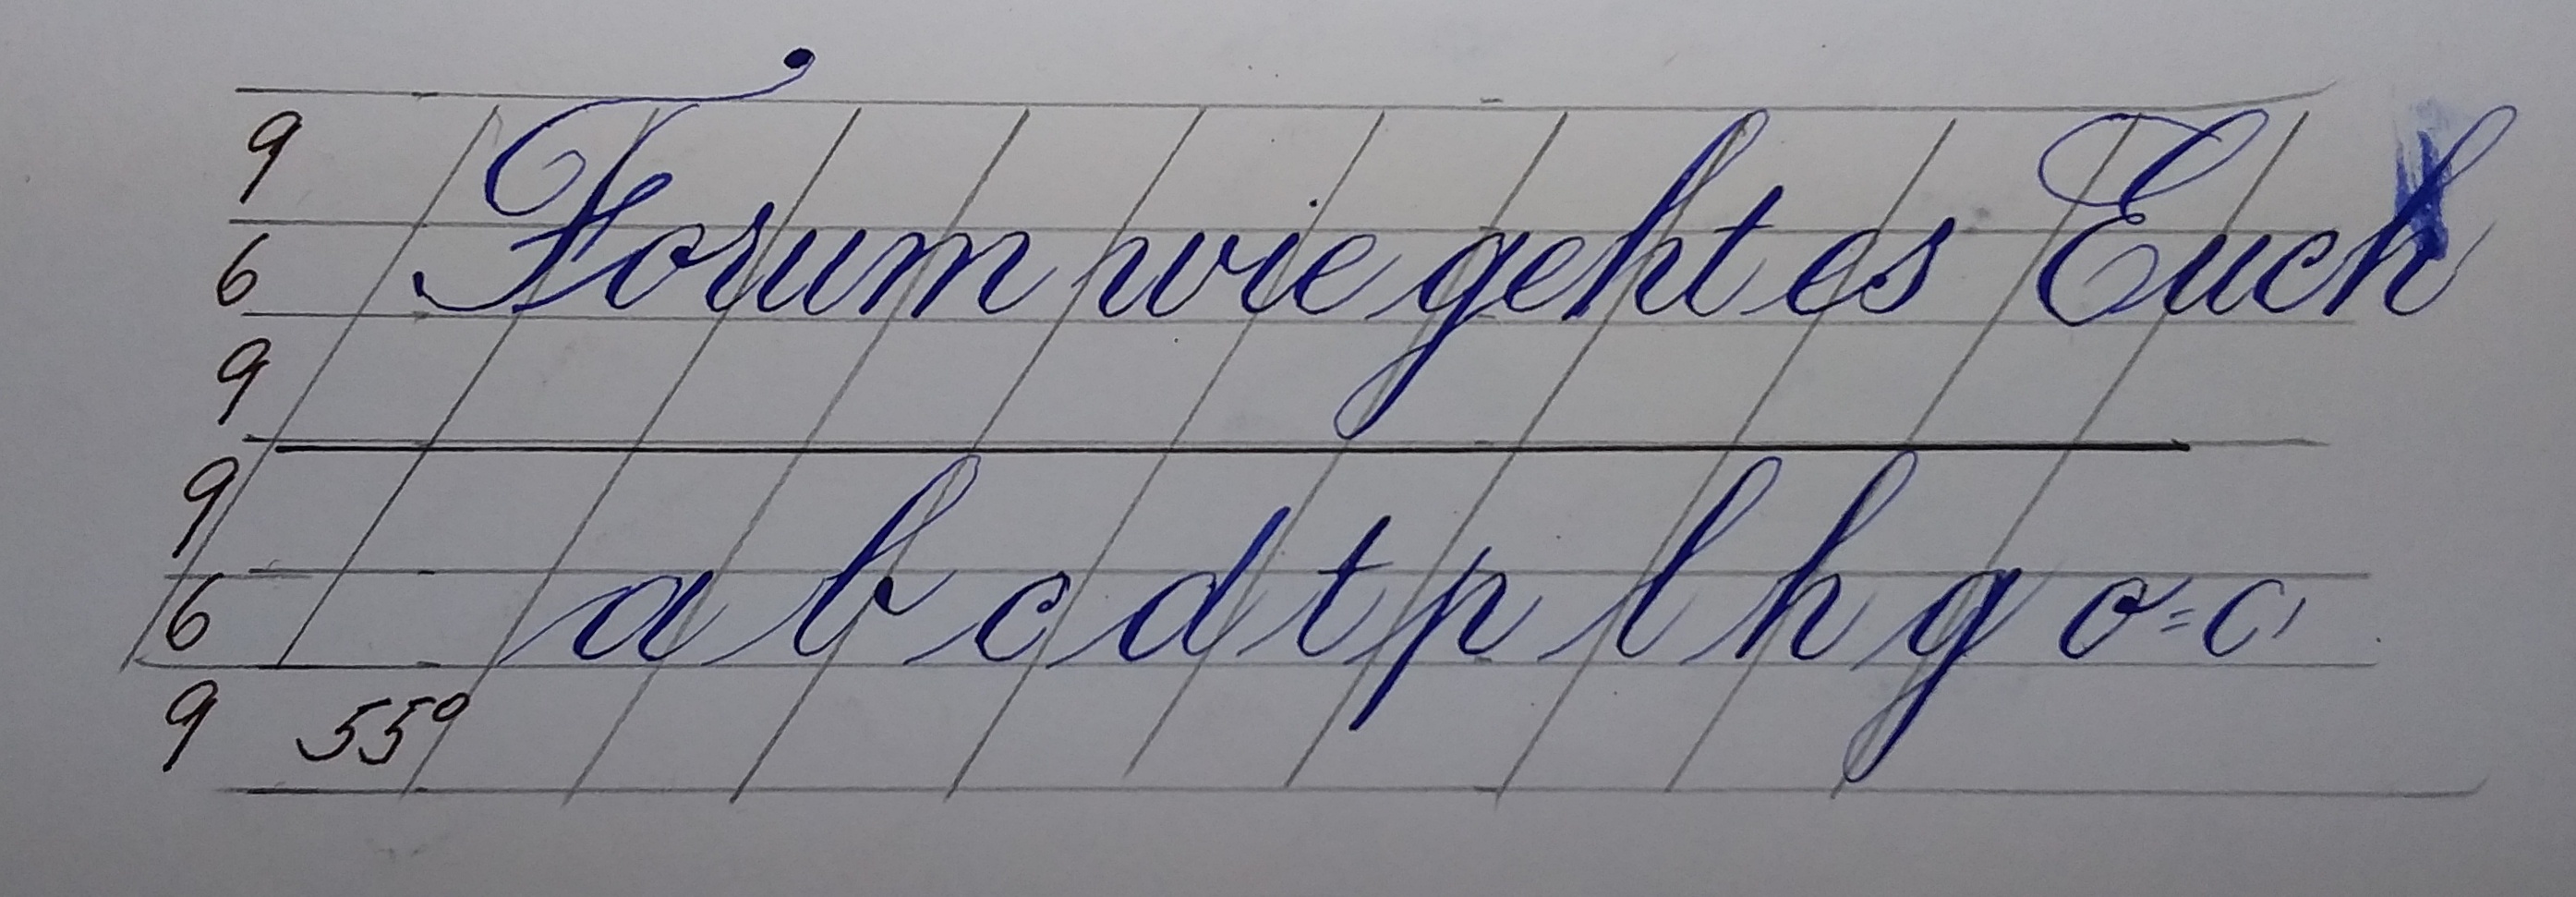 9
Forum wie geht es Euch
6
9
9
a b c d t p l h g o = c
6
9 55°